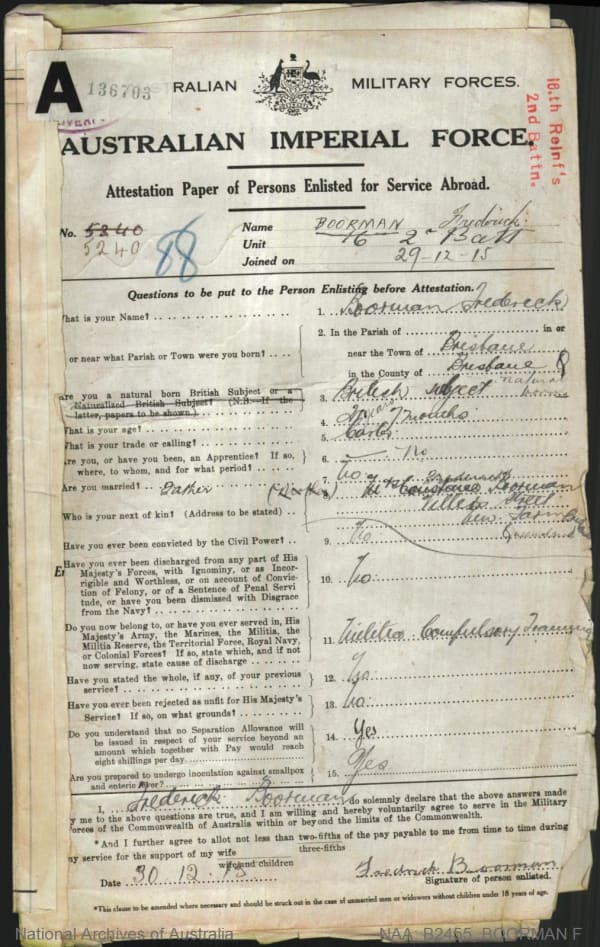 A 136703 RALIAN MILITARY FORCES.
16.th Reinf's
2nd Battn.
AUSTRALIAN IMPERIAL FORCE.
Attestation Paper of Persons Enlisted for Service Abroad.
No. 5240
5240
88
Name BOORMAN Frederick
Unit 16 2 Batt
Joined on 29-12-15
Questions to be put to the Person Enlisting before Attestation.
hat is your Name? 1. Boorman Frederick
2. In the Parish of in or
or near what Parish or Town were you born? near the Town of Brisbane
in the County of Brisbane
re you a natural born British Subject or a 3. British subject natural
Naturalized British Subject? (N.B.—If the
latter, papers to be shown.)
hat is your age? 4. 7 months
hat is your trade or calling? 5. Carter
re you, or have you been, an Apprentice? If so, 6. No
where, to whom, and for what period?
re you married? 7. No
Father (Mother)
Constance Boorman
Who is your next of kin? (Address to be stated) Street
New Farm
Queensland
Have you ever been convicted by the Civil Power? 9. No
Have you ever been discharged from any part of His
Majesty's Forces, with Ignominy, or as Incor-
rigible and Worthless, or on account of Convic-
tion of Felony, or of a Sentence of Penal Servi
tude, or have you been Dismissed with Disgrace
from the Navy? 10. No
Do you now belong to, or have you ever served in, His
Majesty's Army, the Marines, the Militia, the
Militia Reserve, the Territorial Force, Royal Navy,
or Colonial Forces? If so, state which, and if not
now serving, state cause of discharge 11. Militia Compulsory Training
Have you stated the whole, if any, of your previous
service? 12.
Have you ever been rejected as unfit for His Majesty's
Service? If so, on what grounds? 13. No
Do you understand that no Separation Allowance will
be issued in respect of your service beyond an
amount which together with Pay would reach
eight shillings per day. 14. Yes
Are you prepared to undergo inoculation against smallpox
and enteric fever? 15. Yes
I, Frederick Boorman do solemnly declare that the above answers made
y me to the above questions are true, and I am willing and hereby voluntarily agree to serve in the Military
orces of the Commonwealth of Australia within or beyond the limits of the Commonwealth.
*And I further agree to allot not less than two-fifths of the pay payable to me from time to time during
three-fifths
y service for the support of my wife
wife and children
Date 30 12 15 Fredrick Boorman
Signature of person enlisted.
*This clause to be amended where necessary and should be struck out in the case of unmarried men or widowers without children under 18 years of age.
National Archives of Australia NAA: B2455, BOORMAN F